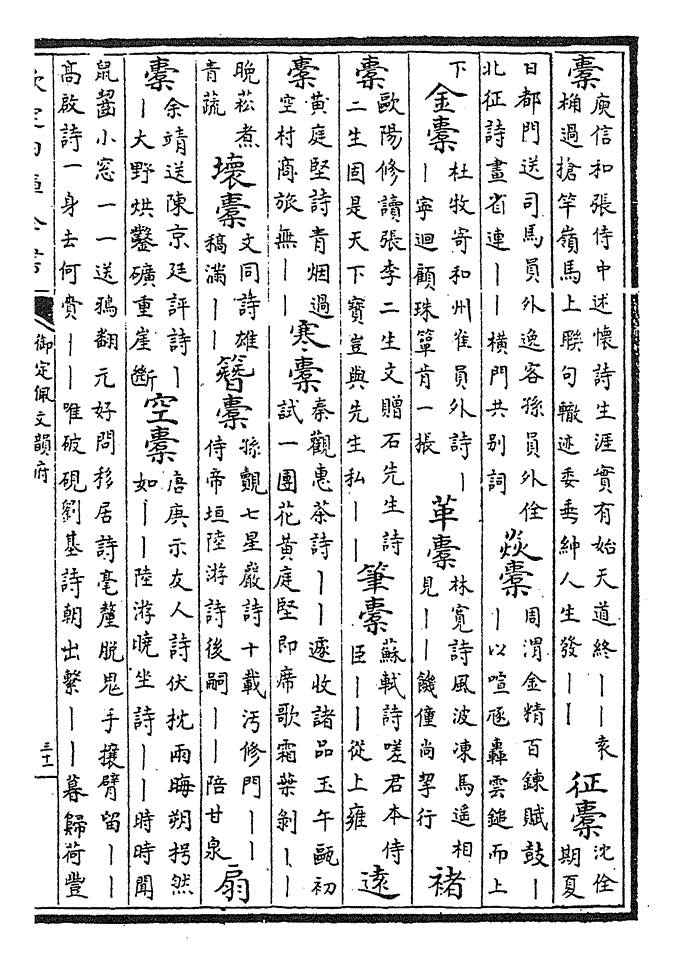 橐
庾信和張侍中述懷詩生涯實有始天道終丨丨袁
桷過搶竿嶺馬上聯句轍迹委垂紳人生發丨丨
征橐
沈佺
期夏
日都門送司馬員外逸客孫員外佺
北征詩畫省連丨丨横門共别詞
焱橐
周渭金精百鍊賦鼓丨
丨以喧豗轟雲鎚而上
下
金橐
杜牧寄和州崔員外詩丨
丨寧迴顧珠簞肯一振
革橐
林寛詩風波凍馬遥相
見丨丨饑僮尚挈行
褚
橐
歐陽修讀張李二生文贈石先生詩
二生固是天下寶豈與先生私丨丨
筆橐
蘇軾詩嗟君本侍
臣丨丨從上雍
遠
橐
黄庭堅詩青烟過
空村商旅無丨丨
寒橐
秦觀惠茶詩丨丨遽收諸品玉午甌初
試一團花黄庭堅即席歌霜葉剝丨丨
晚菘煮
青蔬
壞橐
文同詩雄
稿滿丨丨
簪橐
孫覿七星巖詩十載汚修門丨丨
侍帝垣陸游詩後嗣丨丨陪甘泉
扇
橐
余靖送陳京廷評詩丨
丨大野烘鑿礦重崖斷
空橐
唐庚示友人詩伏枕雨晦朔枵然
如丨丨陸游曉坐詩丨丨時時聞
鼠齧小窓一一送鴉翻元好問移居詩毫釐脱鬼手攘臂留丨丨
高啟詩一身去何貴丨丨唯破硯劉基詩朝出繫丨丨暮歸荷豐
欽定四庫全書
御定佩文韻府
三十二